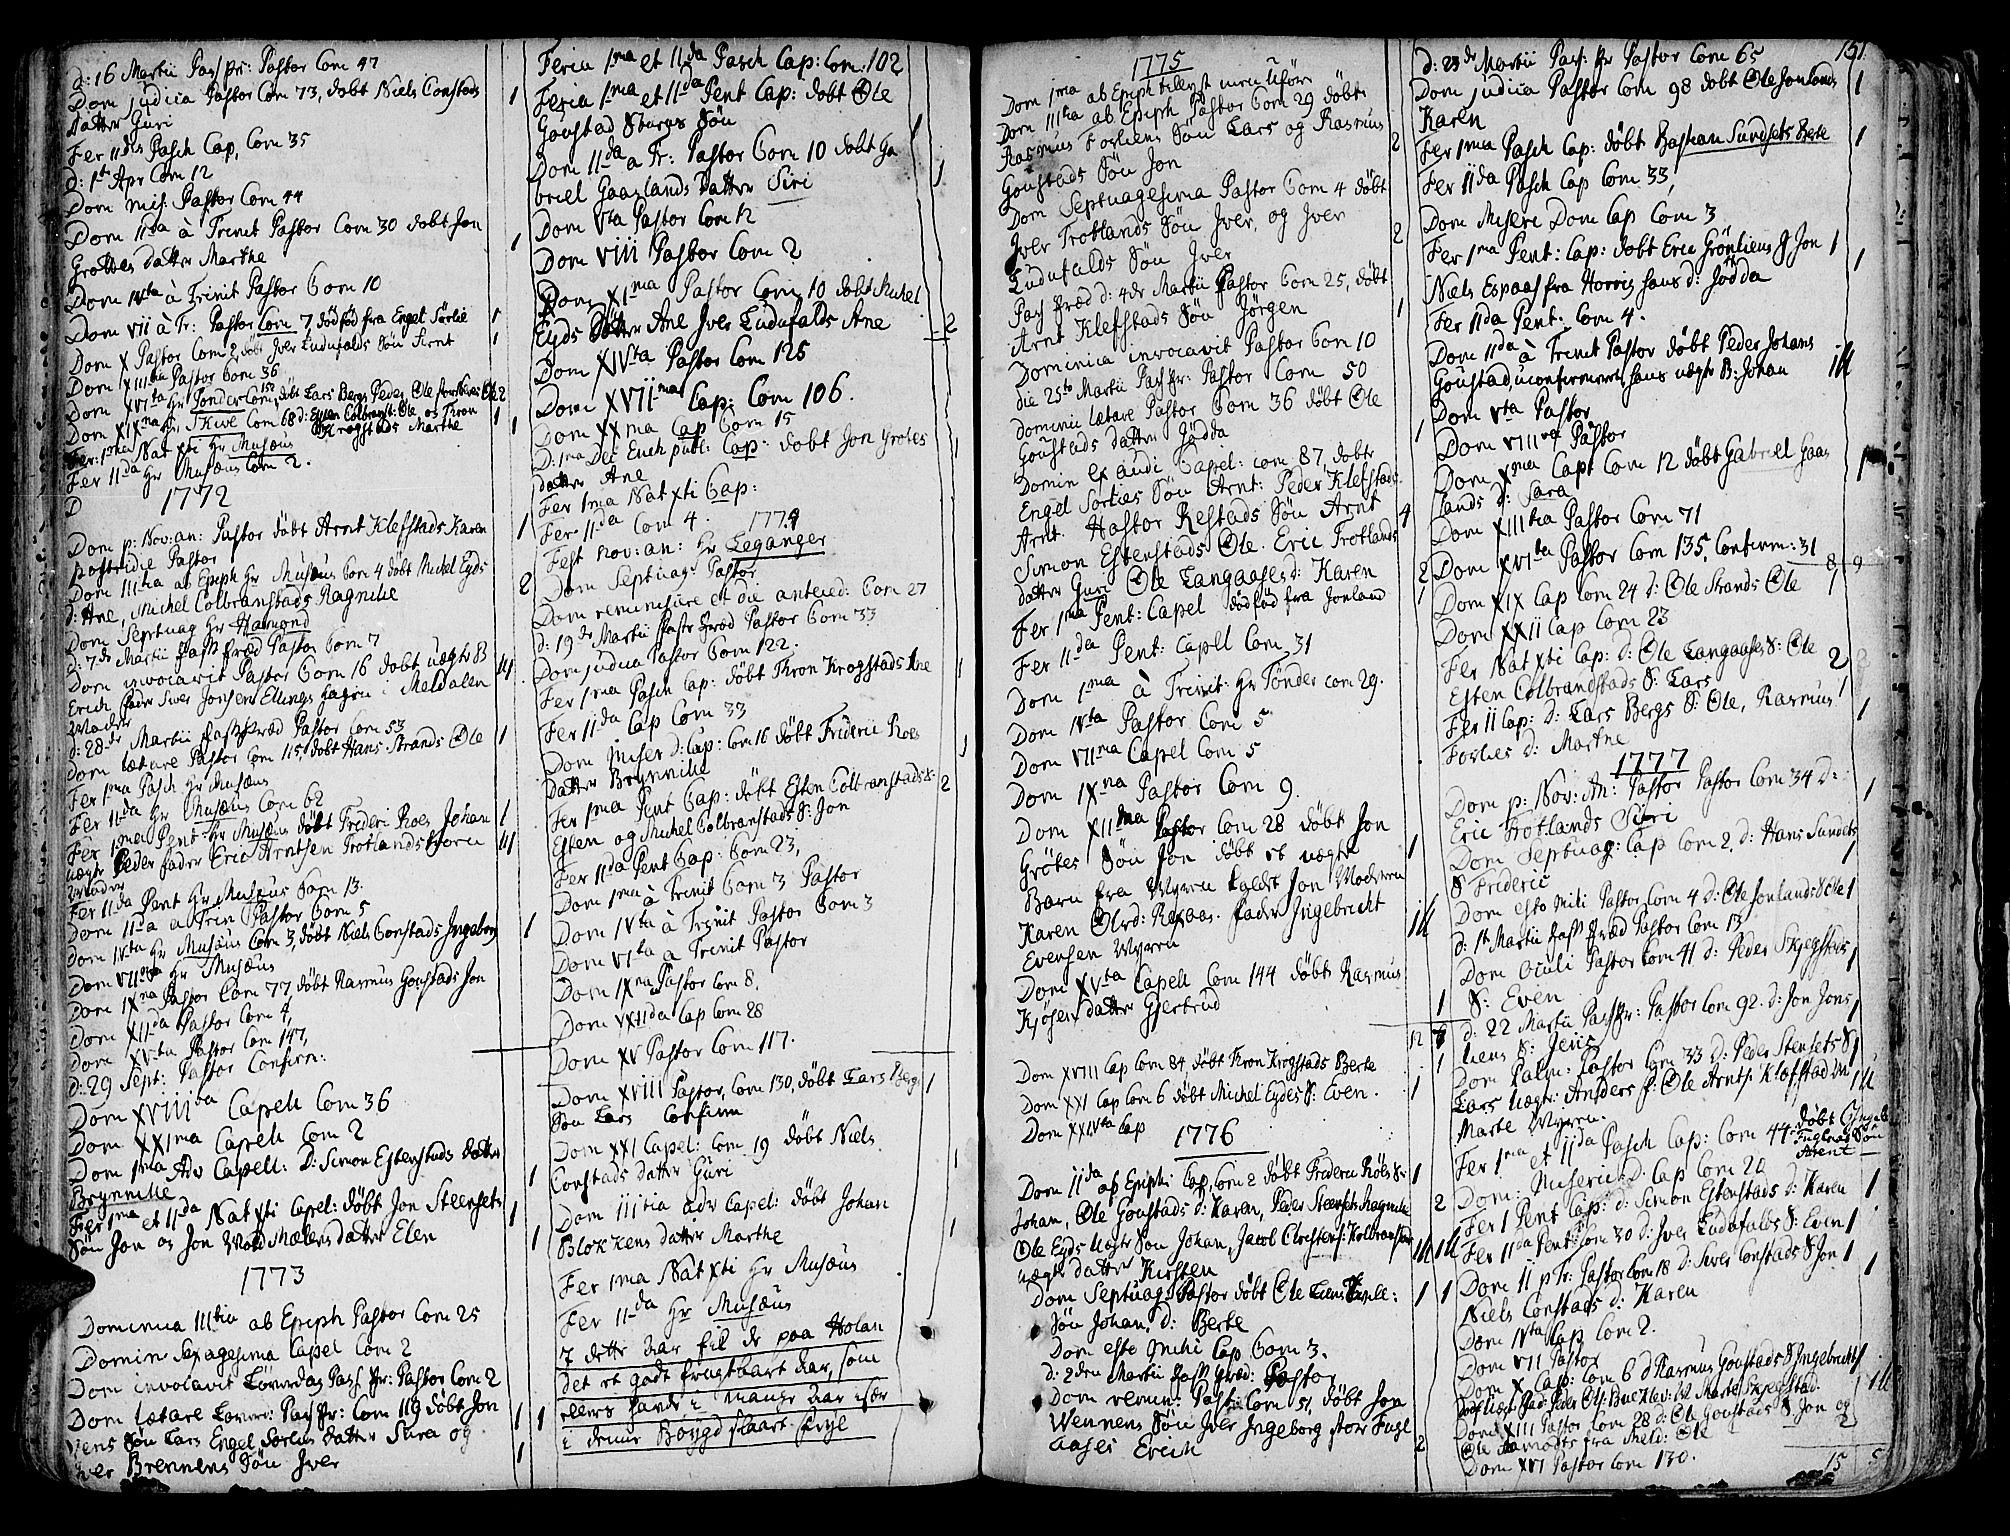 d: 16 Martii Pass pr: Pastor Com 47
Dom judica Pastor Com 73, dobt Niels Constads
datter Guri
Fer 11da Pasch Cap, Com 35
d: 1te Apr Com 12
Dom mis. Pastor Com 44
Dom 11da à Trinit Pastor Com 30 dobt Jon
Grottes datter Marthe
Dom IVta à Trinit Pastor Com 10
Dom VII à Tr: Pastor Com 7, dödföd fra Engel Sørlie
Dom X Pastor Com 2 döbt Jver Ludufalds Sön Arnt
Dom XIIItia Pastor Com 36
Dom XVIta Hr Tønder Com 152, döbt Lars Bergs Peder, Ole
Dom XIXma Hr. Skive Com 68 d: Esten Colbranst: Ole og Thron
Krogstads Marthe
Fer: 1ma Nat xti Hr Musæus
Fer 11da Hr Musæus Com 2.
1772
Dom p: Nov: an: Pastor döbt Arnt Klefstads Karen
postridie Pastor
Dom IIItia ab Epiph Hr Musæus Com 4 döbt Michel Eyds
d: Ane, Michel Colbranstads Ragnilie
Dom Septuag Hr Hamond
d: 7de Martii Pass præd Pastor Com 7
Dom invocavit Pastor Com 16 döbt uægte B
Erich fader Siver Jonsen Ellings hagen i Meldalen
Moder
d: 28de Martii Pass præd Pastor Com 53
Dom lætare Pastor Com 115, döbt Hans Strands Ole
Fer 1ma Pasch Hr Musæus
Fer 11da Hr Musæus Com 62
Fer 1ma Pent Hr Musæus döbt Frideri Roes Johan
uægte Peder fader Eric Arntsen Trotlands
Moder
Fer 11da Pent Hr Musæus Com 13.
Dom 11da a Trin Pastor Com 5
Dom IVta Hr Musæus Com 3, döbt Niels Constads Ingeborg
Dom VIIma Hr Musæus
Dom IXna Pastor Com 77, döbt Rasmus Goustads Jon
Dom XIIda Pastor Com 4,
Dom XVta Pastor Com 147,
d: 29 Sept: Pastor Confirm:
Dom XVIII Capell Com 36
Dom XXIma Capell Com 2
Dom 1ma Adv Capell: D: Simon Estenstads datter
Brynnilie
Fer 1ma et 11da Nat xti Capel: döbt Jon Steensets
Sön Jon og Jon Mælens datter Elen
1773
Dominica IIItia ab Epiph Pastor Com 25
Domin Sexagesima Capel Com 2
Dom invocavit Löverdag Pass pr: Pastor Com 2
Dom lætare Löver: Pass pr: Com 119 döbt Jon
Sön Lars Engel Sorlies datter Sira og
Jver Brennens Sön Jver
Feria 1ma et 11da Pasch Cap: Com: 102
Feria 1ma et 11da Pent Cap: döbt Ole
Goustad Sön
Dom 11da a Tr: Pastor Com 10 döbt Ga
briel Gaaslands datter Siri
Dom Vta Pastor Com 12
Dom VIII Pastor Com 2
Dom XIma Pastor Com 10 döbt Michel
Eyds datter Ane Jver Ludufalds Ane
Dom XIVta Pastor Com 125
Dom XVIIma Cap: Com 106.
Dom XXma Cap Com 15
D: 1ma Dec Euch publ: Cap: döbt Jon Grötes
datter Ane
Fer 1ma Nat xti Cap:
Fer 11da Com 4.
1774
Fest nov: an: Hr Leganger
Dom Septuag: Pastor
Dom reminiscere et die anteced: Com 27
d: 19de Martii Pass præd Pastor Com 33
Dom judica Pastor Com 122.
Fer 1ma Pasch Cap: döbt Thron Krogstads Ane
Fer 11da Cap Com 33
Dom Miser d: Cap: Com 16 döbt Frideric Roes
datter Brynnilie
Fer 1ma Pent Cap: döbt Esten Colbranstads S:
Esten og Michel Colbranstads S: Jon
Fer 11da Pent Cap: Com 23,
Dom 1ma à Trinit Com 3 Pastor
Dom IVta à Trinit Pastor Com 3
Dom VIta a Trinit Pastor
Dom IXna Pastor Com 8,
Dom XIIda Cap Com 28
Dom XV Pastor Com 117.
Dom XVIII Pastor, Com 130, döbt Lars Bergs
Sön Lars Confirm
Dom XXI Capel: Com 19 döbt Niels
Constads datter Guri
Dom IIItia adv Capel: döbt Johan
Blokkens datter Marthe
Fer 1ma Nat xti Hr Musæus
Fer 11da Hr Musæus
I dette aar fik de paa Holan
det et godt frugtbart aar, som
ellers i mange aar
i denne Bøygd
1775
Dom 1ma ab Epiph
Dom IIItia ab Epiph Pastor Com 29 döbt
Rasmus Foslies Sön Lars og Rasmus
Goustads Sön Jon
Dom Septuagesima Pastor Com 4 döbt
Jver Trotlands Sön Jver, og Jver
Ludufalds Sön Jver
Pass præd d: 4de Martii Pastor Com 25, döbt
Arnt Klefstads Sön Jörgen
Dominica invocavit Pastor Com 10
die 25te Martii Pass pr: Pastor Com 50
Dominic lætare Pastor Com 36 döbt Ole
Goustads datter Jödda
Domin Exaudi Capel: Com 87, döbt
Engel Sorlies Sön Arnt: Peder Klefstads
Arnt. Hastor Restads Sön Arnt
Simon Estenstads Ole. Eric Trotlands
datter Guri Ole Langaases d: Karen
Fer 1ma Pent: Capel dödföd fra Jonland
Fer 11da Pent: Capell Com 31
Dom 1ma à Trinit: Hr Tønder Com 29.
Dom IVta Pastor Com 5
Dom VIIma Capel Com 5
Dom IXna Pastor Com 9.
Dom XIIma Pastor Com 28 döbt Jon
Grötes Sön Jon döbt et uægte
Barn fra Myren kaldt Jon Moderen
Karen Olsd: Resaas. fader Ingebricht
Evensen Myren
Dom XVta Capell Com 144 döbt Rasmus
Kjösen datter Gjertrud
Dom XVIII Cap Com 84, döbt Thron Krogstads Berte
Dom XXI Cap Com 6 döbt Michel Eydes S: Even.
Dom XXIVta Cap
1776
Dom 11da ab Epiph: Cap, Com 2 döbt Frideric Röes S:
Johan, Ole Goustads d: Karen, Peder Steensets Ragnilie
Ole Eyds uægte Sön Johan, Jacob Kolbranstad
uægte datter Kirsten
Dom Septuag: Pastor döbt Ole
Sön Johan, d: Berte
Dom esto mihi Cap Com 3.
d: 2den Martii Pass præd: Pastor
Dom remin: Past: Com 51, döbt Jon
Wennens Sön Jver Ingeborg store Fugl
aases Erich
151
d: 23de Martii Pass: pr Pastor Com 65
Dom judica Pastor Com 98 döbt Ole Jonlands
Karen
Fer 1ma Pasch Cap: döbt Bastian Sundsets Berte
Fer 11da Pasch Cap Com 33,
Dom Miseri Dom Cap Com 3
Fer 1ma Pent: Cap: döbt Eric Grönliens S Jon
Niels Espaas fra Horrig hans d: Jödda
Fer 11da Pent: Com 4.
Dom 11da à Trinit Pastor döbt Peder Johans
Goustad, uconfirmeret, hans uægte B: Johan
Dom Vta Pastor
Dom VIIIva Pastor
Dom Xma Cap: Com 12 döbt Gabriel Gaas
lands d: Sara
Dom XIIItia Pastor Com 71
Dom XVIta Pastor Com 135, Confirm: 31
Dom XIX Cap Com 24 d: Ole Strands Ole
Dom XXII Cap Com 23
Fer Nat xti Cap: d: Ole Langaases S: Ole
Esten Colbrandstads S: Lars
Fer II Cap: d: Lars Bergs S: Ole, Rasmus
Foslies d: Marthe
1777
Dom p: Nov: An: Pastor Com 34 d:
Eric Trotlands Siri
Dom Septuag: Cap Com 2, d: Hans Sundsets
S Frideric
Dom esto mihi Pastor Com 4 d: Ole Jonlands Ole
d: 1te Martii Pass præd Pastor Com 13
Dom Oculi Pastor Com 41 d: Peder Skjegstads
S: Even
d: 22 Martii Pass pr: Pastor Com 92. d: Jon Jons
liens S: Jens
Dom Palm: Pastor Com 33 D: Peder Stensets S
Lars uægte: Anders f: Ole Arnts: Kløfstad M
Marte Myren.
Fer 1ma et 11da Pasch Cap: Com 44. döbt
Sön
Arent
Dom: Misericd: Cap Com 20
Fer 1 Pent Cap: d: Simon Estenstads d: Karen
Fer 11da Pent: Com 30 d: Jver Ludufalds S: Even
Dom II p Tr: Pastor Com 18 d: Siver Constads S Jon
Niels Constads d: Karen
Dom IVta Cap Com 2.
Dom VII Pastor
Dom X Cap: Com 6 d Rasmus Goustads S Ingebricht
Marte Skjegstad.
Dom XIII Pastor Com 28 d: Ole Goustads S Jon og
Ole fra Meld: Ole
Dom XVI Pastor Com 130.
15 5